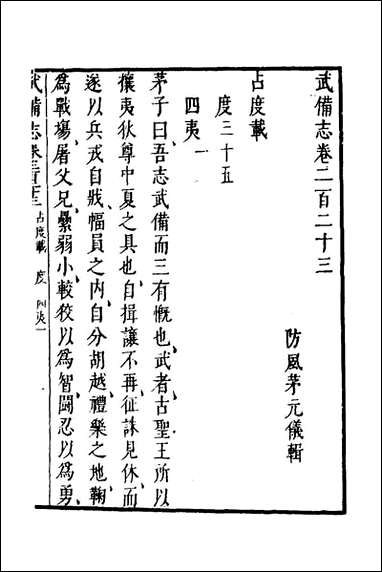 武備志卷二百二十三
防風茅元儀輯
占度載
度三十五
四夷一
茅子曰、吾志武備而三有慨也、武者、古聖王所以
攘夷狄尊中夏之具也、自揖讓不再、征誅見休、而
遂以兵戎自戕、幅員之內、自分胡越、禮樂之地、鞠
為戰場、屠父兄、纍弱小、較狡以為智、鬪忍以為勇、
武備志卷二百二十三 占度載 度 四夷一